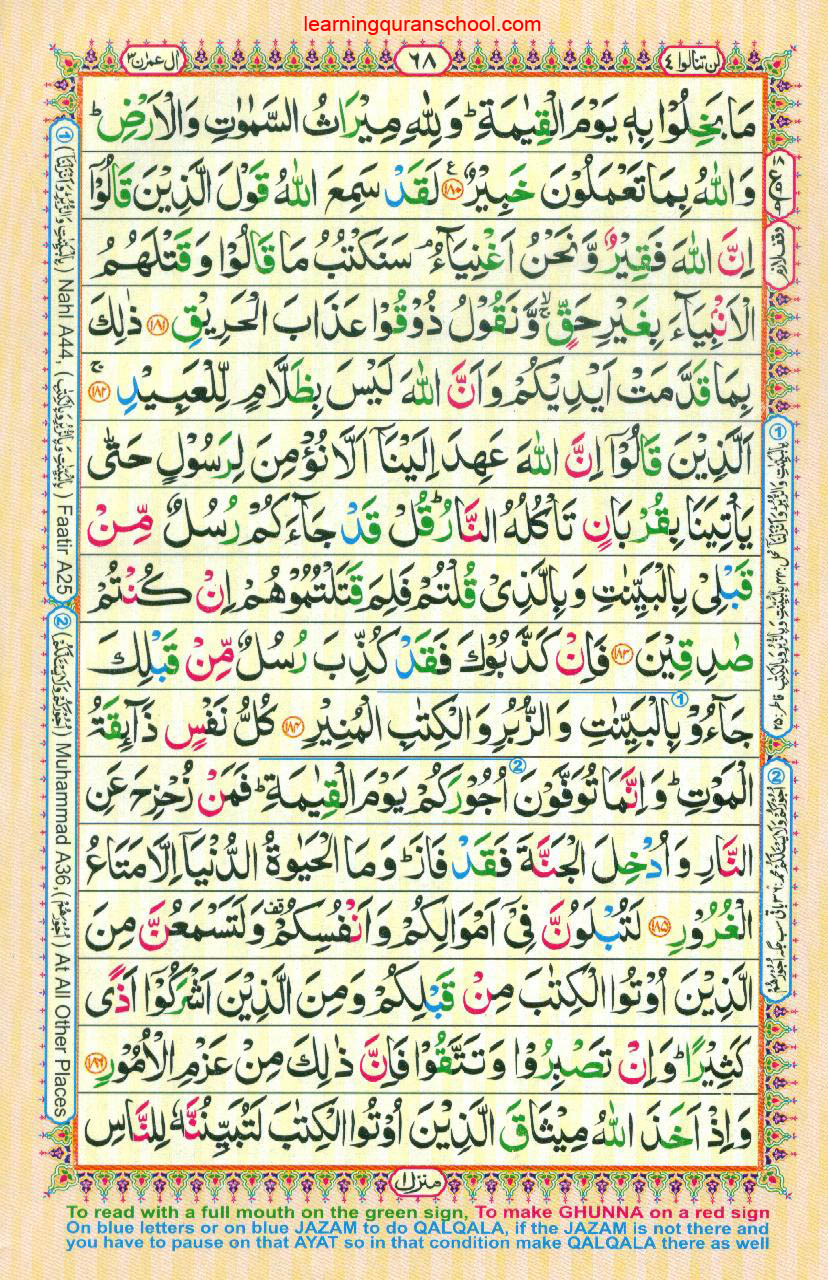 learningquranschool.com
لن تنالوا ۴
۶۸
اٰل عمرٰن ۳
مَا بَخِلُوْا بِهٖ يَوْمَ الْقِيٰمَةِ ؕ وَلِلّٰهِ مِيْرَاثُ السَّمٰوٰتِ وَالْاَرْضِ ؕ
وَاللّٰهُ بِمَا تَعْمَلُوْنَ خَبِيْرٌ ﴿۱۸۰﴾ ع لَقَدْ سَمِعَ اللّٰهُ قَوْلَ الَّذِيْنَ قَالُوْٓا
اِنَّ اللّٰهَ فَقِيْرٌ وَّنَحْنُ اَغْنِيَآءُ ۘ سَنَكْتُبُ مَا قَالُوْا وَقَتْلَهُمُ
الْاَنْۢبِيَآءَ بِغَيْرِ حَقٍّ ۙ وَّنَقُوْلُ ذُوْقُوْا عَذَابَ الْحَرِيْقِ ﴿۱۸۱﴾ ذٰلِكَ
بِمَا قَدَّمَتْ اَيْدِيْكُمْ وَاَنَّ اللّٰهَ لَيْسَ بِظَلَّامٍ لِّلْعَبِيْدِ ﴿۱۸۲﴾ ۚ
اَلَّذِيْنَ قَالُوْٓا اِنَّ اللّٰهَ عَهِدَ اِلَيْنَآ اَلَّا نُؤْمِنَ لِرَسُوْلٍ حَتّٰى
يَاْتِيَنَا بِقُرْبَانٍ تَاْكُلُهُ النَّارُ ؕ قُلْ قَدْ جَآءَكُمْ رُسُلٌ مِّنْ
قَبْلِيْ بِالْبَيِّنٰتِ وَبِالَّذِيْ قُلْتُمْ فَلِمَ قَتَلْتُمُوْهُمْ اِنْ كُنْتُمْ
صٰدِقِيْنَ ﴿۱۸۳﴾ فَاِنْ كَذَّبُوْكَ فَقَدْ كُذِّبَ رُسُلٌ مِّنْ قَبْلِكَ
جَآءُوْ بِالْبَيِّنٰتِ وَالزُّبُرِ وَالْكِتٰبِ الْمُنِيْرِ ﴿۱۸۴﴾ كُلُّ نَفْسٍ ذَآئِقَةُ
الْمَوْتِ ؕ وَاِنَّمَا تُوَفَّوْنَ اُجُوْرَكُمْ يَوْمَ الْقِيٰمَةِ ؕ فَمَنْ زُحْزِحَ عَنِ
النَّارِ وَاُدْخِلَ الْجَنَّةَ فَقَدْ فَازَ ؕ وَمَا الْحَيٰوةُ الدُّنْيَآ اِلَّا مَتَاعُ
الْغُرُوْرِ ﴿۱۸۵﴾ لَتُبْلَوُنَّ فِيْٓ اَمْوَالِكُمْ وَاَنْفُسِكُمْ قف وَلَتَسْمَعُنَّ مِنَ
الَّذِيْنَ اُوْتُوا الْكِتٰبَ مِنْ قَبْلِكُمْ وَمِنَ الَّذِيْنَ اَشْرَكُوْٓا اَذًى
كَثِيْرًا ؕ وَاِنْ تَصْبِرُوْا وَتَتَّقُوْا فَاِنَّ ذٰلِكَ مِنْ عَزْمِ الْاُمُوْرِ ﴿۱۸۶﴾
وَاِذْ اَخَذَ اللّٰهُ مِيْثَاقَ الَّذِيْنَ اُوْتُوا الْكِتٰبَ لَتُبَيِّنُنَّهٗ لِلنَّاسِ
وقف لازم
① (بِالْبَيِّنٰتِ وَالزُّبُرِ وَاَنْزَلْنَآ) Nahl A44, (بِالْبَيِّنٰتِ وَبِالزُّبُرِ وَبِالْكِتٰبِ) Faatir A25
② (اُجُوْرَكُمْ وَلَا يَسْـَٔلْكُمْ) Muhammad A36, (اُجُوْرَهُمْ) At All Other Places
منزل ۱
To read with a full mouth on the green sign, To make GHUNNA on a red sign
On blue letters or on blue JAZAM to do QALQALA, if the JAZAM is not there and
you have to pause on that AYAT so in that condition make QALQALA there as well